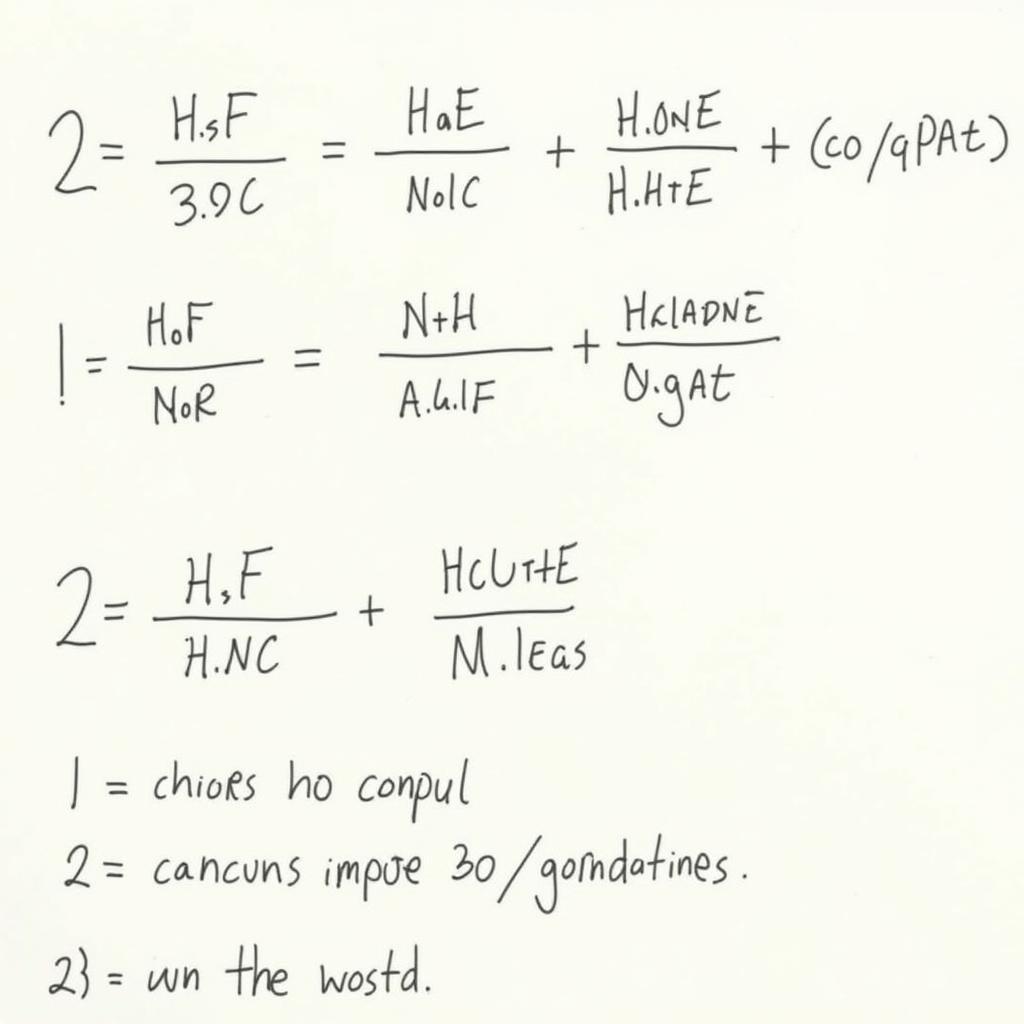 2 = H.sF / 3.9C = HaE / NolC + H.ONE / H.HtE + (co/qPAt)
1 = HoF / NoR = N+H / A.h.IF + HclADNE / O.gAt
2 = H,F / H.NC + HcUttE / M.lEas
1 = chioRs ho conpul
2 = cancuns impoe 30/gorndatines.
2} = wn the wostd.